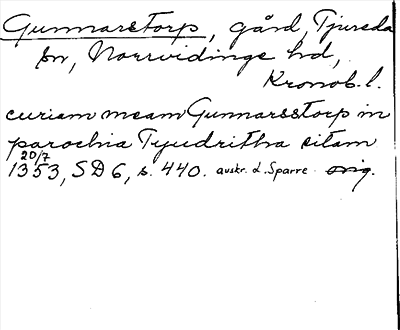 Gunnarstorp, gård, Tjureda
sn, Norrvidinge hd,
Kronob. l.
curiam meam Gunnarsstorp in
parochia Tyudritha sitam
20/7
1353, SD 6, s. 440. avskr. d. Sparre orig.